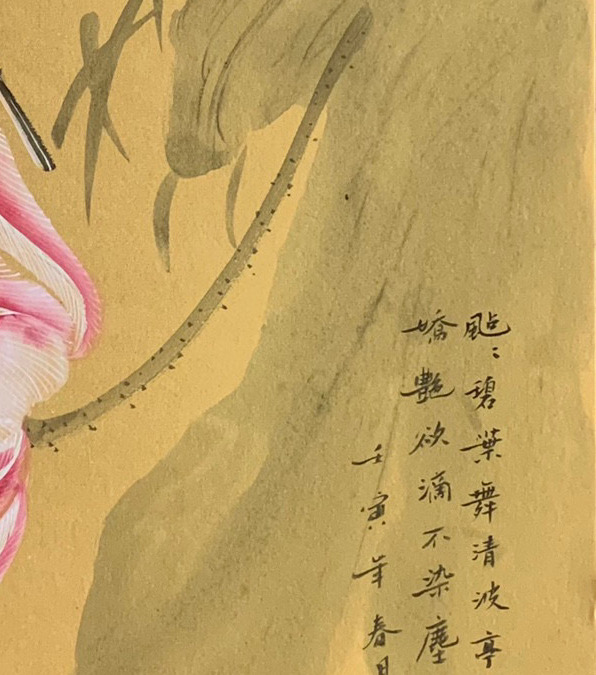 飐〻碧葉舞清波亭
嬌艷欲滴不染塵
壬寅年春月